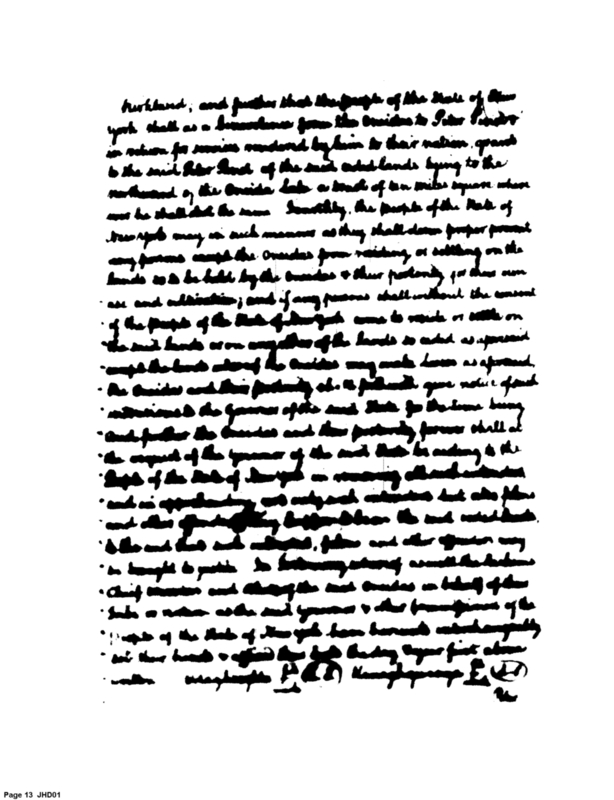 Kirkland; and further that the people of the State of New
york shall as a benevolence from the Oneidas to Peter Penet &
in return for services rendered by him to their nation, grant
to the said Peter Penet of the said ceded lands lying to the
northward of the Oneida Lake a tract of ten miles square where
ever he shall elect the same the people of the State of
New york may in such manner as they shall deem proper prevent
any persons except the Oneidas from residing or settling on the
lands so to be held by the Oneidas & their posterity for their own
use and cultivation; and if any persons shall without the consent
of the people of the State of New york come to reside or settle on
the said lands or on any other of the lands so ceded as aforesaid
except the lands whereof the Oneidas may make leases as aforesaid,
the Oneidas and their posterity shall forthwith give notice of such
intrusions to the Governor of the said State for the time being
and further the Oneidas and their posterity forever shall at
the request of the Governor of the said State be aiding to the
People of the State of New york in removing all such intruders
and in apprehending not only such intruders but also felons
and other offenders the said ceded lands
to the end that such intruders, felons and other offenders may
be brought to justice. In testimony whereof as well the Sachems
Chief Warriors and others of the said Oneidas in behalf of their
tribe or nation as the said Governor & other Commissioners of the
People of the State of New york have hereunto interchangeably
set their hands & affixed their seals the day & year first above
written